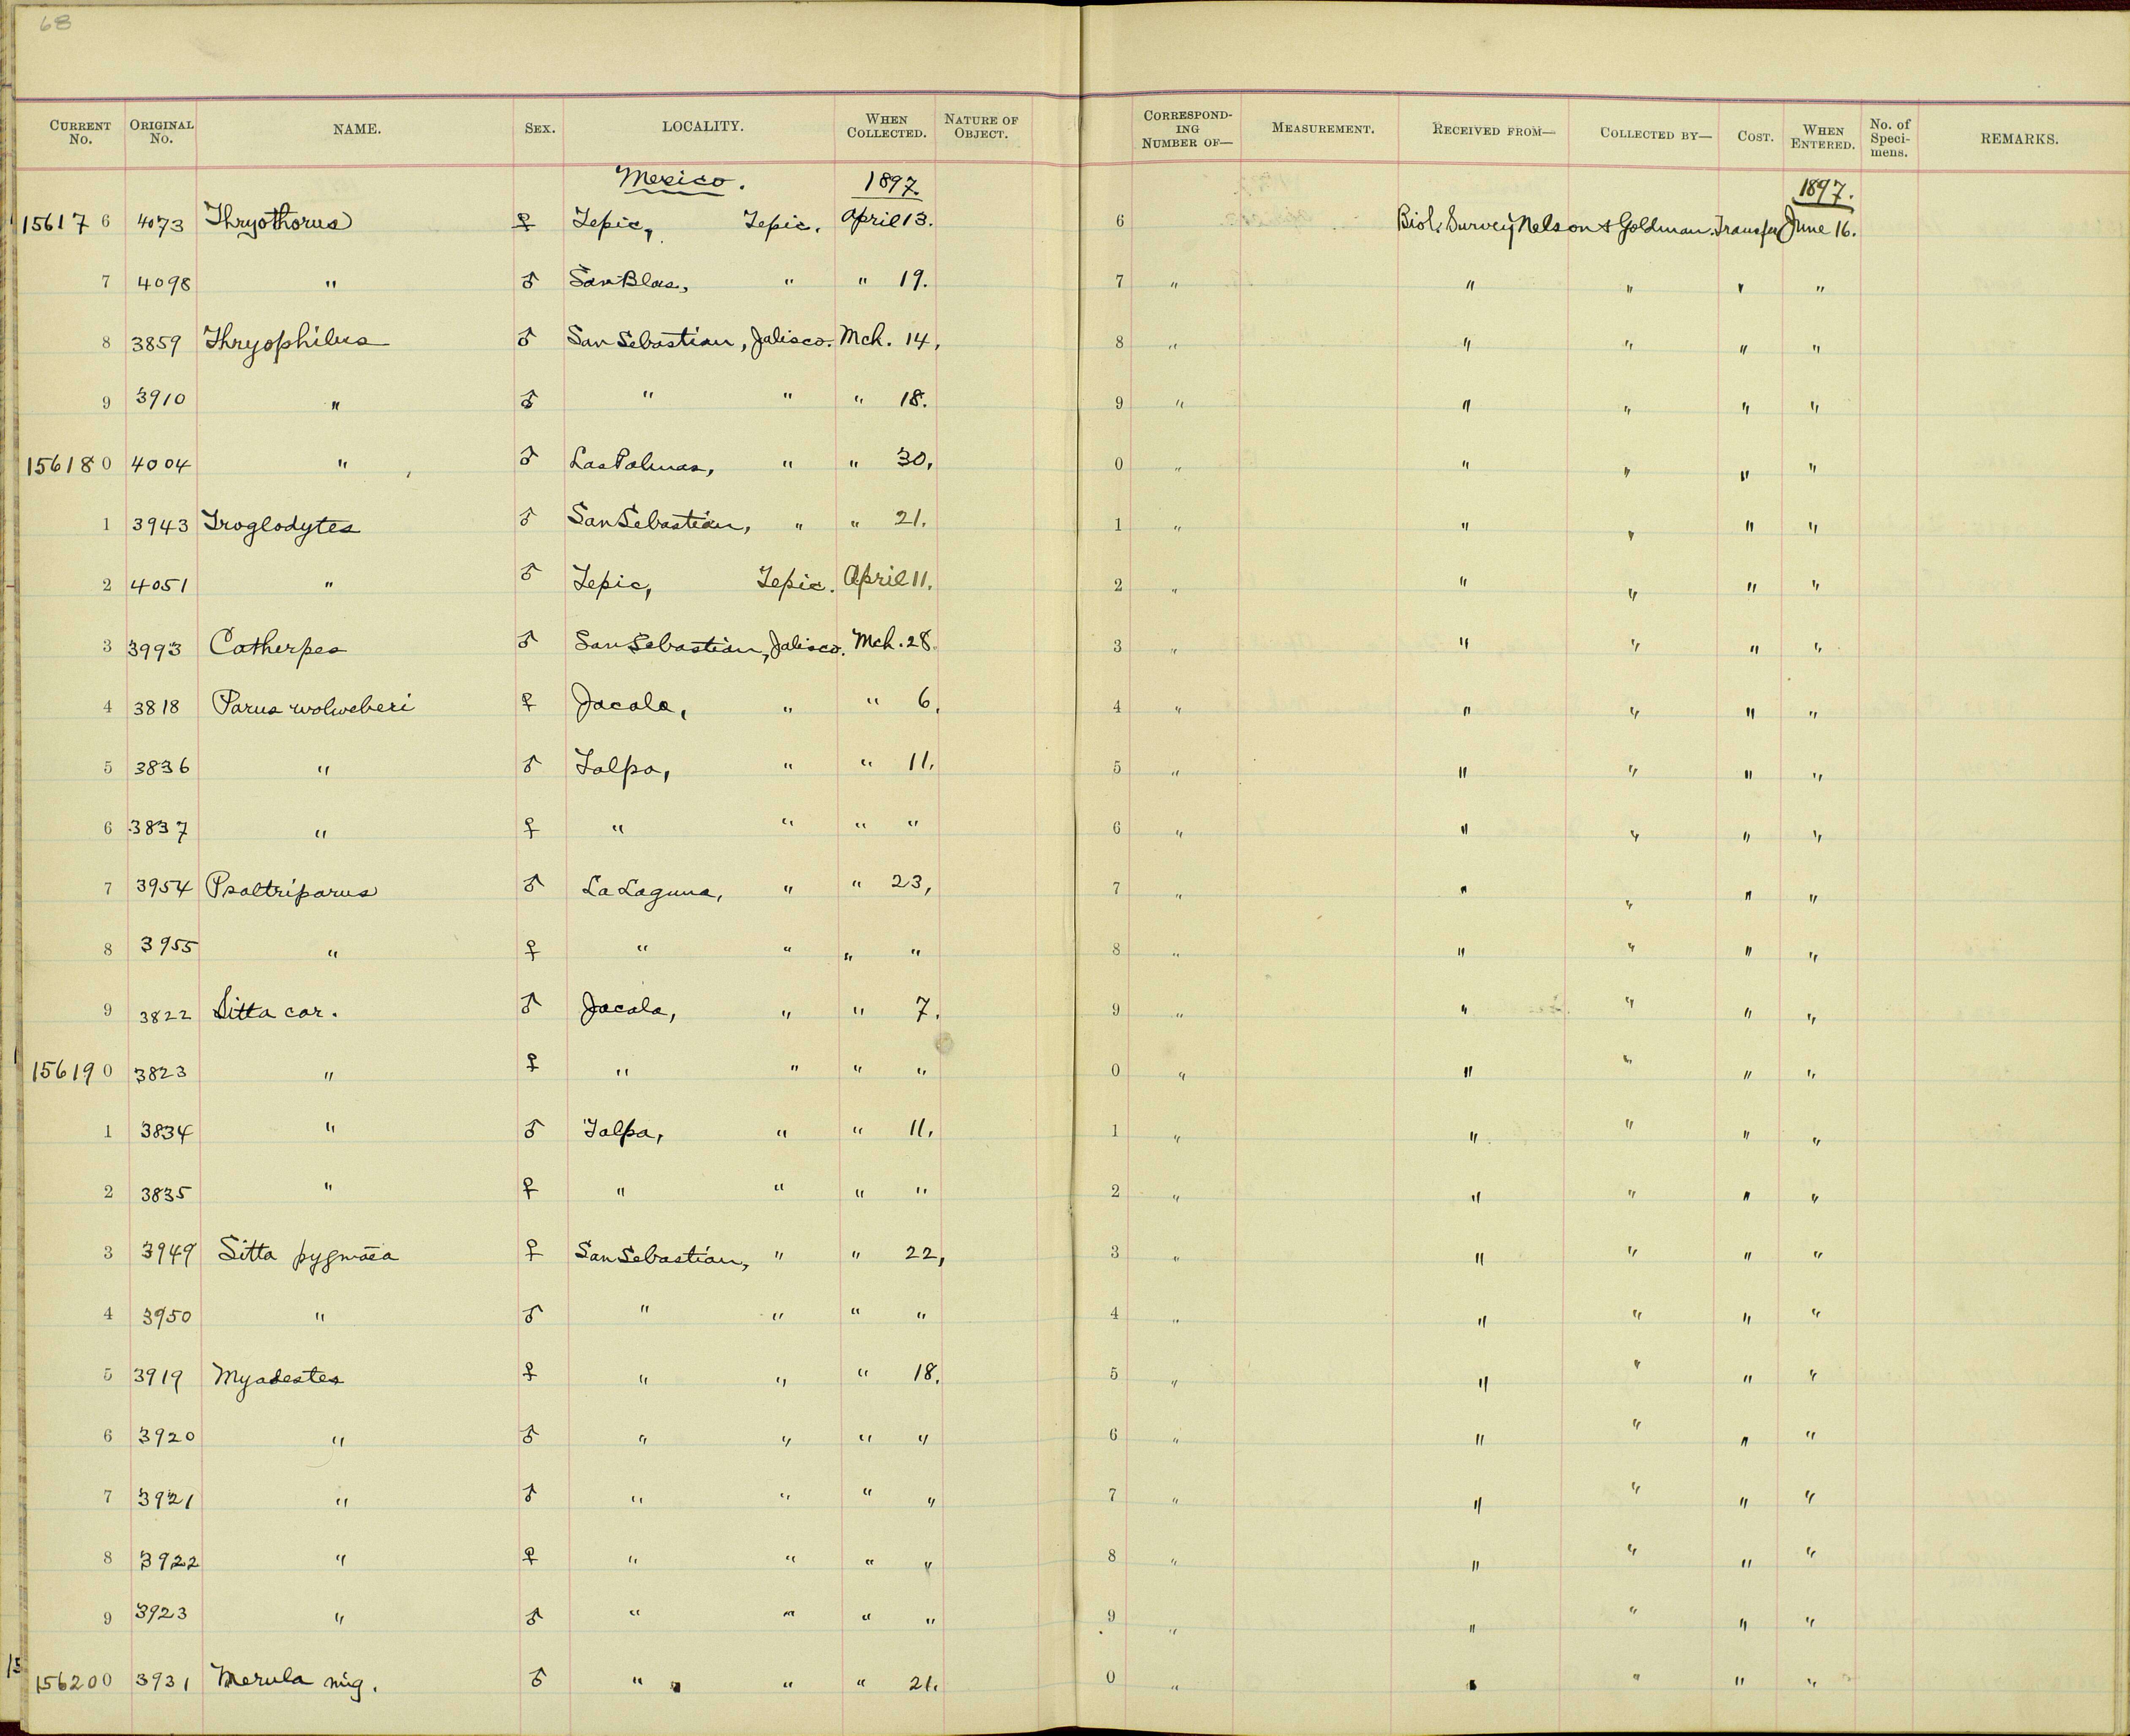 68
CURRENT No. ORIGINAL No. NAME. SEX. LOCALITY. WHEN COLLECTED. NATURE OF OBJECT. CORRESPONDING NUMBER OF— MEASUREMENT. RECEIVED FROM— COLLECTED BY— COST. WHEN ENTERED. No. of Specimens. REMARKS.
Mexico. 1897. 1897.
156176 4073 Thryothorus ♀ Tepic, Tepic. April 13. 6 Biol. Survey Nelson & Goldman. Transfer June 16.
7 4098 " ♂ San Blas, " " 19. 7 " " " " "
8 3859 Thryophilus ♂ San Sebastian, Jalisco. Mch. 14, 8 " " " " "
9 3910 " ♂ " " " 18. 9 " " " " "
156180 4004 " ♂ Las Palmas, " " 30, 0 " " " " "
1 3943 Troglodytes ♂ San Sebastian, " " 21. 1 " " " " "
2 4051 " ♂ Tepic, Tepic. April 11. 2 " " " " "
3 3993 Catherpes ♂ San Sebastian, Jalisco. Mch. 28. 3 " " " " "
4 3818 Parus wolweberi ♀ Jacala, " " 6. 4 " " " " "
5 3836 " ♂ Talpa, " " 11. 5 " " " " "
6 3837 " ♀ " " " " 6 " " " " "
7 3954 Psaltriparus ♂ La Laguna, " " 23, 7 " " " " "
8 3955 " ♀ " " " " 8 " " " " "
9 3822 Sitta car. ♂ Jacala, " " 7. 9 " " " " "
156190 3823 " ♀ " " " " 0 " " " " "
1 3834 " ♂ Talpa, " " 11. 1 " " " " "
2 3835 " ♀ " " " " 2 " " " " "
3 3949 Sitta pygmaea ♀ San Sebastian, " " 22, 3 " " " " "
4 3950 " ♂ " " " " 4 " " " " "
5 3919 Myadestes ♀ " " " 18. 5 " " " " "
6 3920 " ♂ " " " " 6 " " " " "
7 3921 " ♂ " " " " 7 " " " " "
8 3922 " ♀ " " " " 8 " " " " "
9 3923 " ♂ " " " " 9 " " " " "
156200 3931 Merula mig. ♂ " " " 21. 0 " " " " "